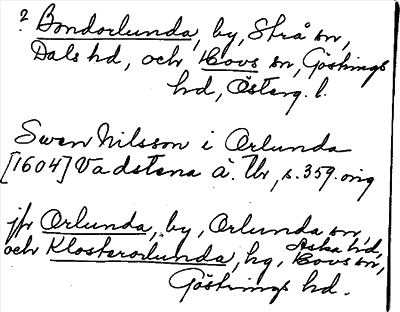 ? Bondorlunda, by, Strå sn,
Dals hd, och Hovs sn, Göstrings
hd, Österg. l.
Swen Nilsson i Orlunda
[1604] Vadstena ä. Ur, s. 359. orig
jfr Orlunda, by, Orlunda sn,
Aska hd,
och Klosterorlunda, hg, Hovs sn,
Göstrings hd.